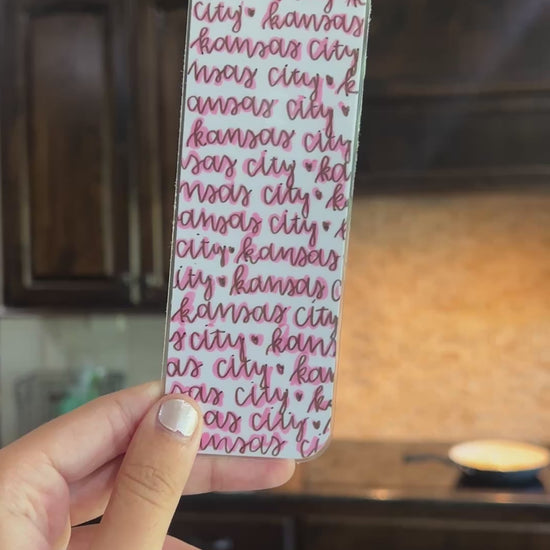 city ♥ kansas
kansas city
nsas city ♥ k
ansas city ♥
kansas city
sas city ♥ ka
nsas city ♥ k
ansas city ♥
city ♥ kansas
ity ♥ kansas c
kansas city
s city ♥ kans
as city ♥ kan
sas city ♥ k
sas city ♥
ansas c